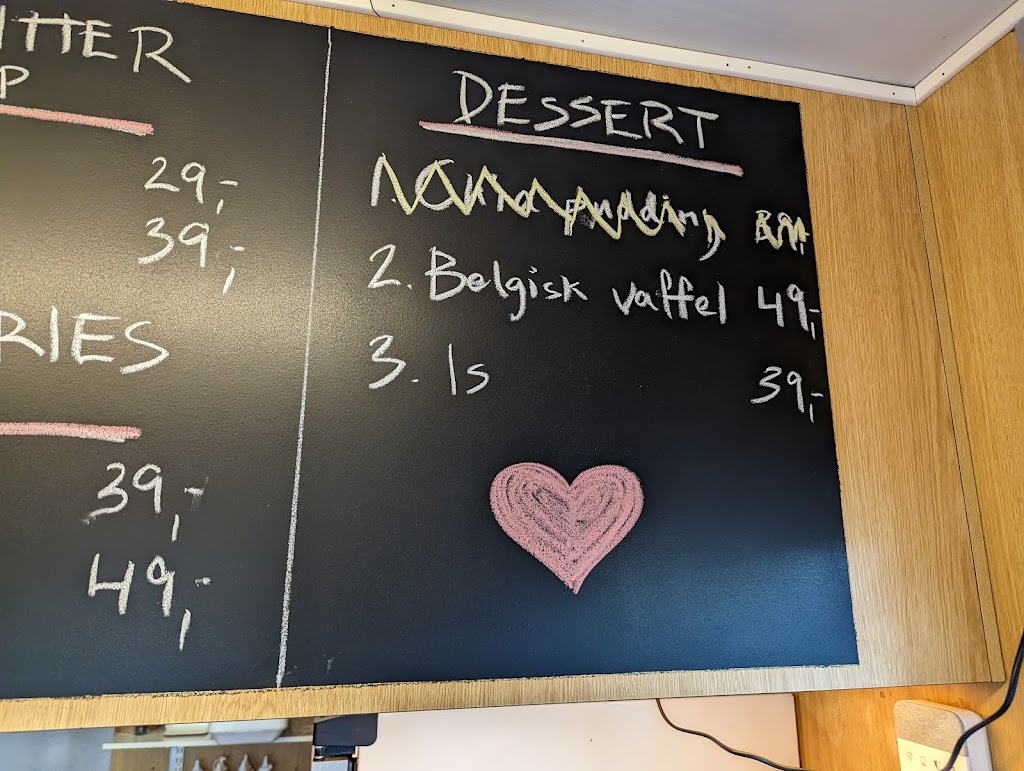 ITTER
P
29,-
39,-
RIES
39,-
49,-
DESSERT
1. Chia pudding
2. Belgisk vaffel 49,-
3. Is 39,-